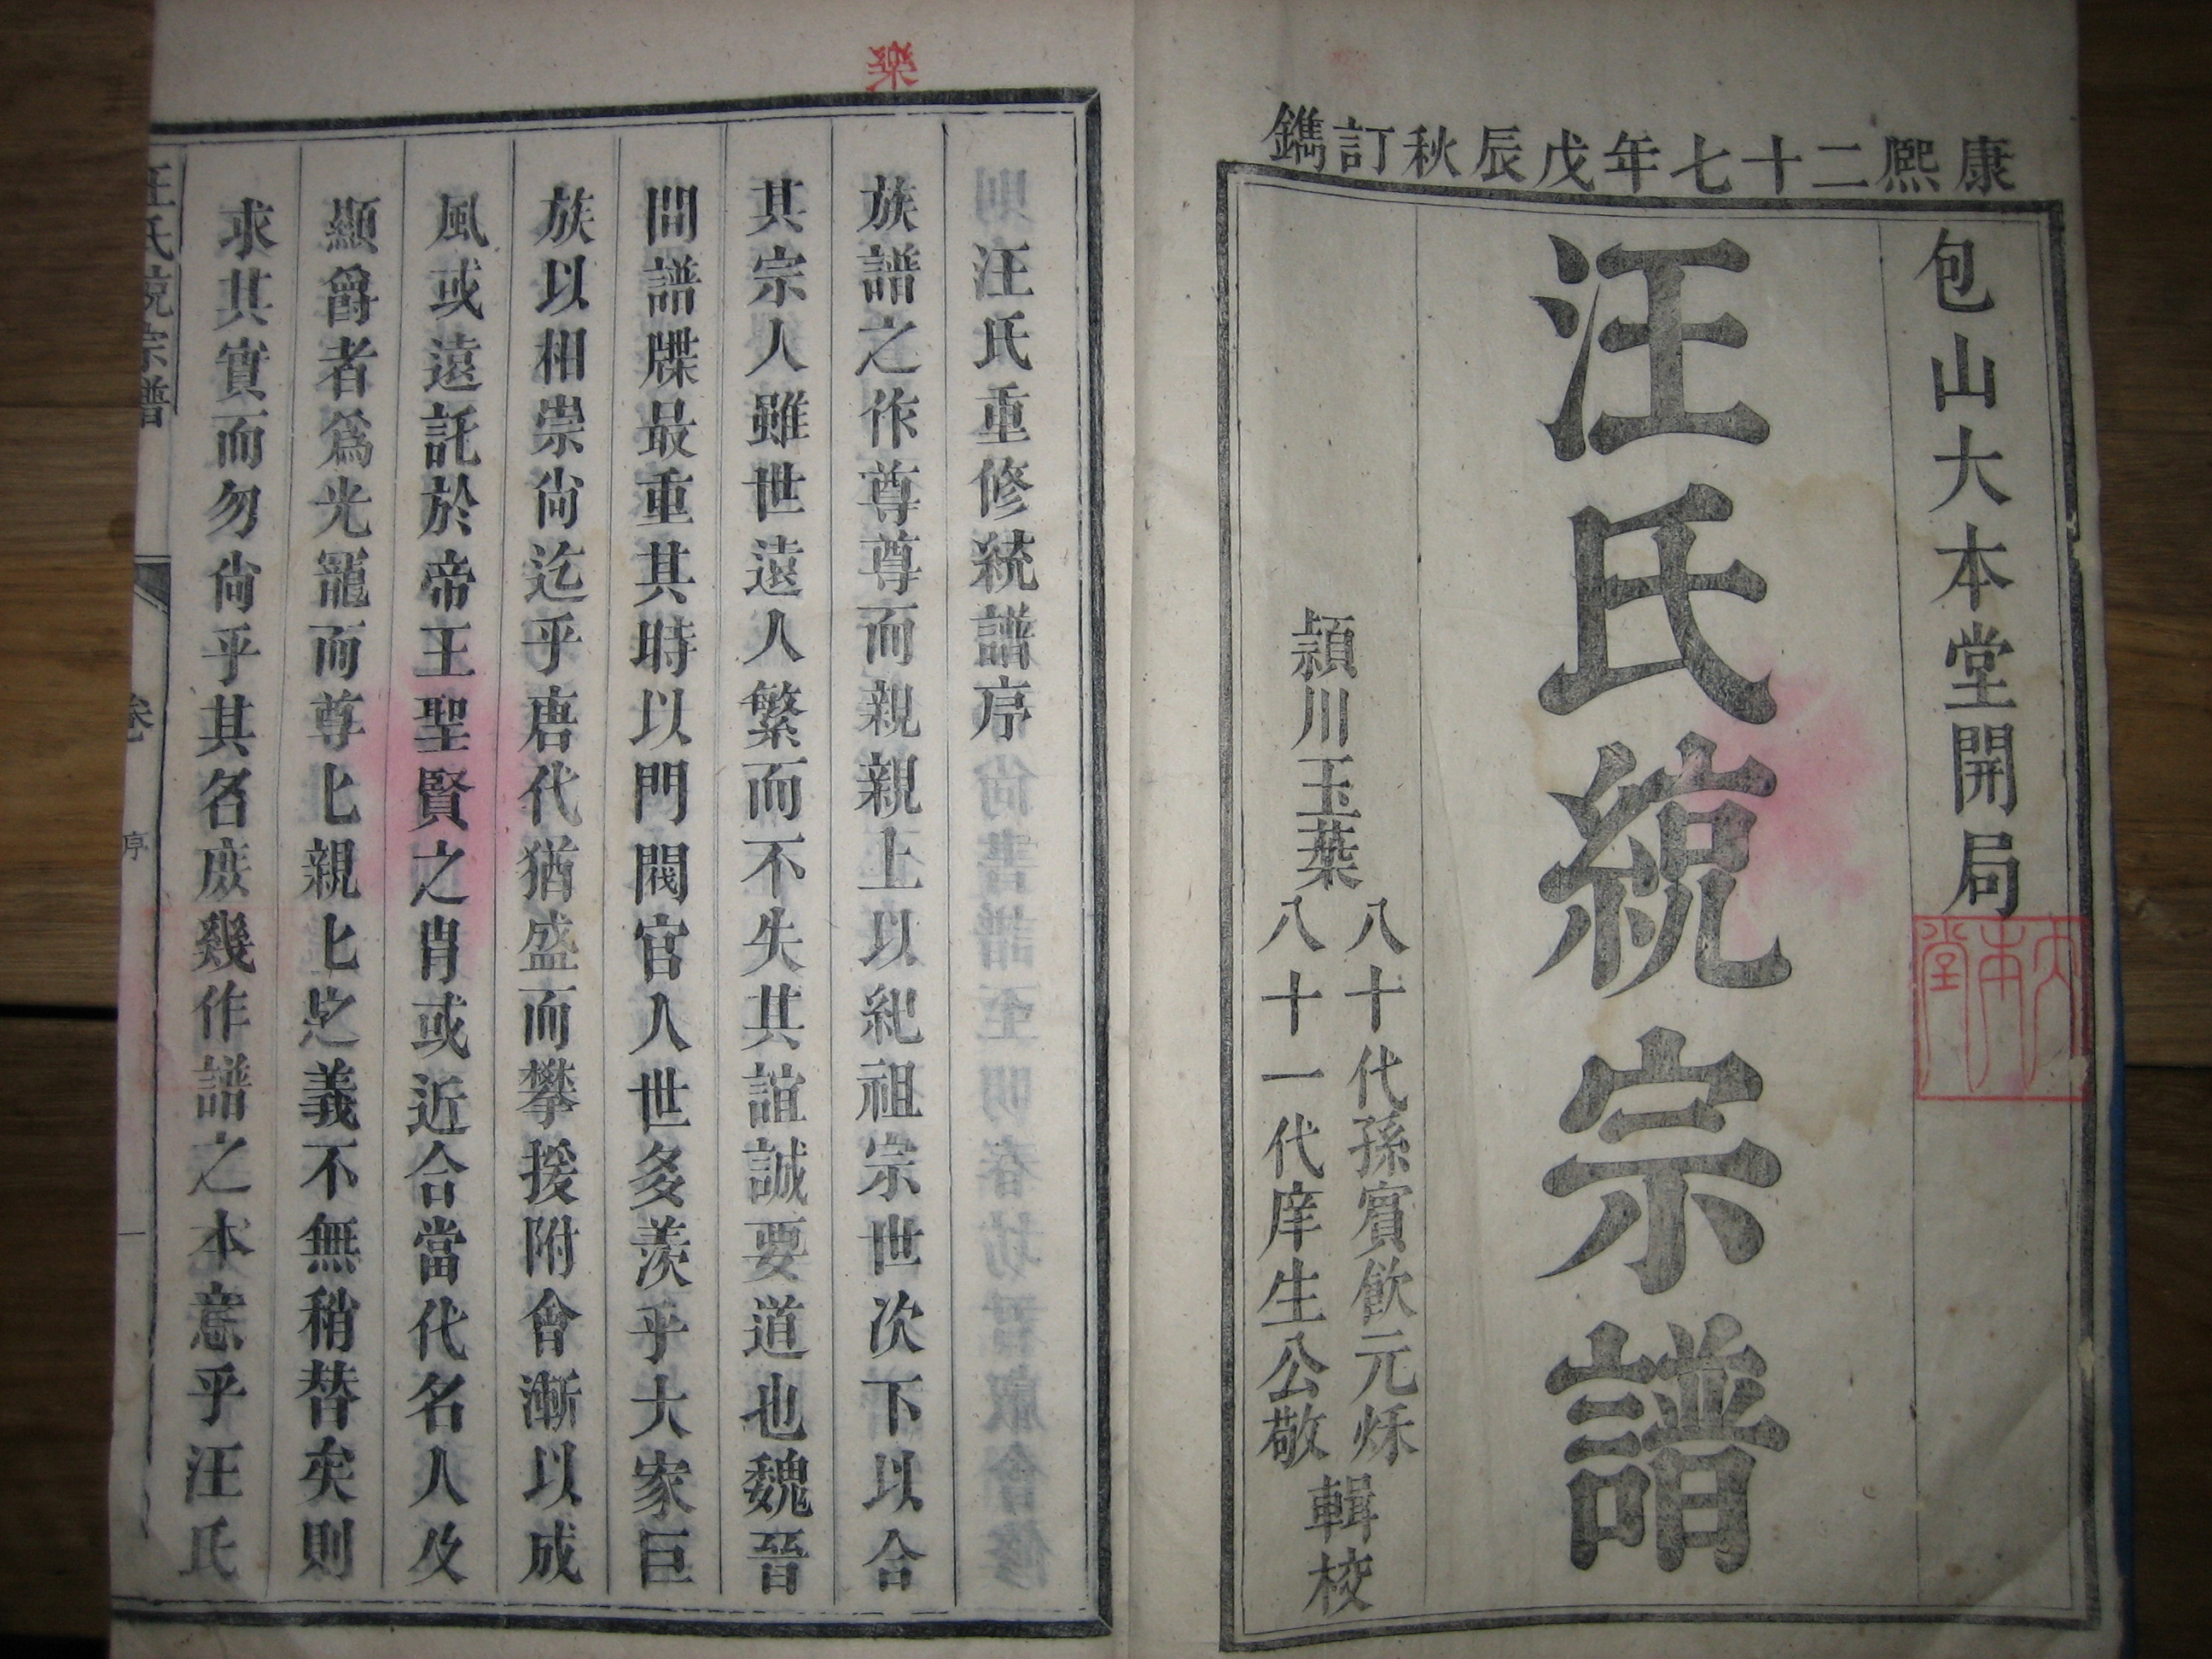 康熙二十七年戊辰秋訂鐫
包山大本堂開局
大本堂
汪氏統宗譜
潁川玉葉
八十代孫賓飲元烁
八十一代庠生公敬
輯校
樂
汪氏重修統譜序
族譜之作尊尊而親親上以紀祖宗世次下以合
其宗人雖世遠人繁而不失其誼誠要道也魏晉
間譜牒最重其時以門閥官人世多羡乎大家巨
族以相崇尙迄乎唐代猶盛而攀援附會漸以成
風或遠託於帝王聖賢之肖或近合當代名人及
顯爵者爲光寵而尊匕親匕之義不無稍替矣則
求其實而勿尙乎其名庶幾作譜之本意乎汪氏
汪氏統宗譜
卷
序
一